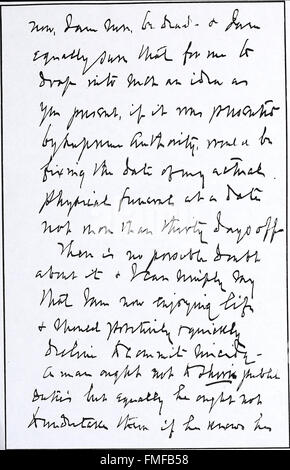 now, I am sure, be dead - & I am
equally sure that for me to
drop into such an idea as
you present, if it was presented
by supreme authority, would be
fixing the date of my actual
physical funeral at a date
not more than thirty days off
There is no possible doubt
about it & I can simply say
that I am now enjoying life
& should positively & quickly
decline to commit suicide -
A man ought not to shirk public
duties but equally he ought not
to undertake them if he knows he
alamy
FMFB58
www.alamy.com